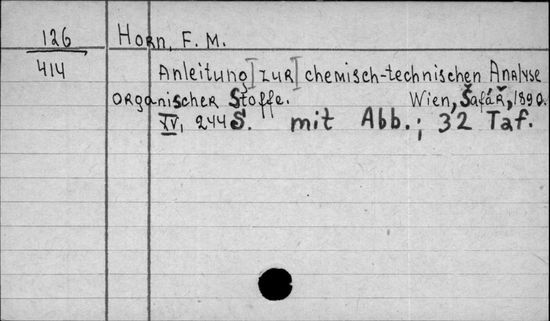 126 Horn, F. M.
414
Anleitung [zur] chemisch-technischen Analyse
organischer Stoffe. Wien, Šafář, 1890.
XV, 244 S. mit Abb.; 32 Taf.